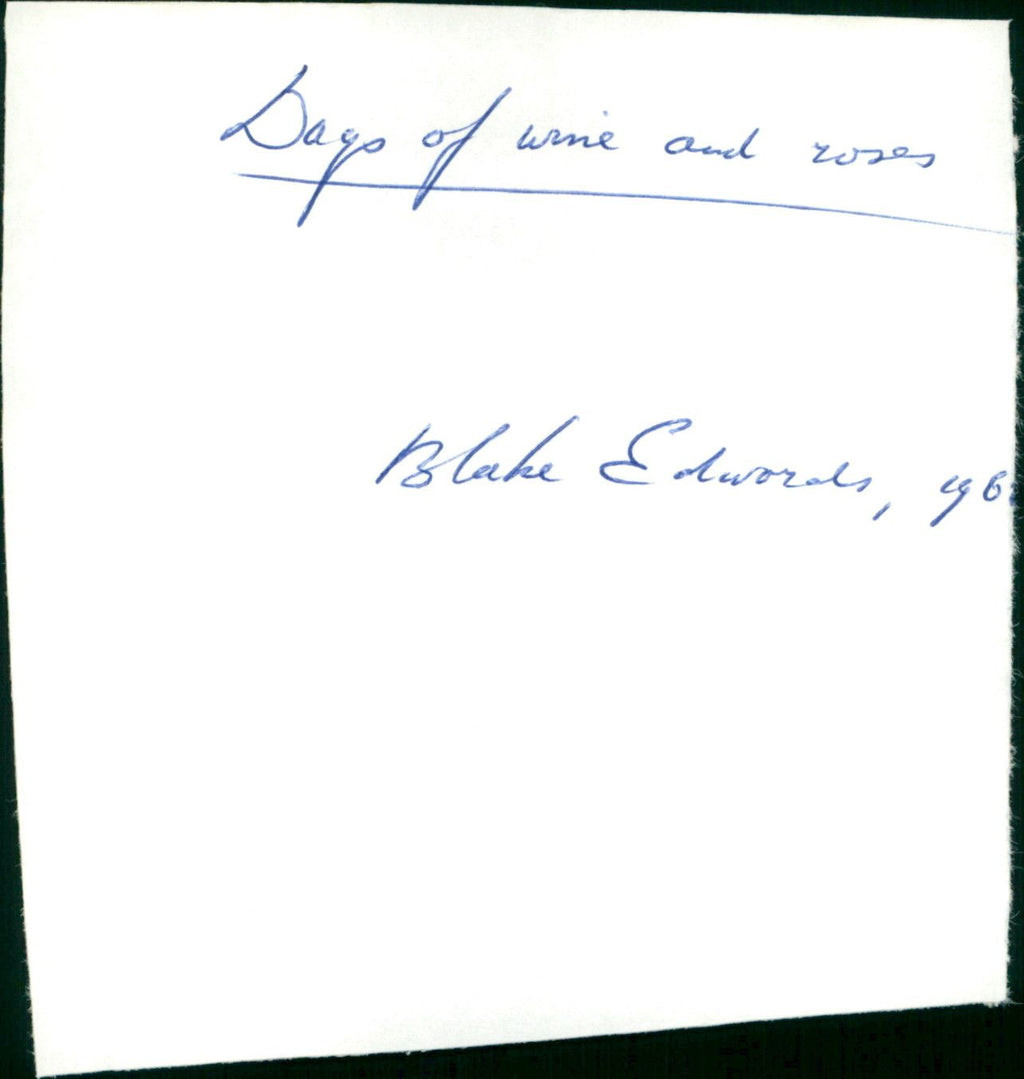 Days of wine and roses
Blake Edwards, 196